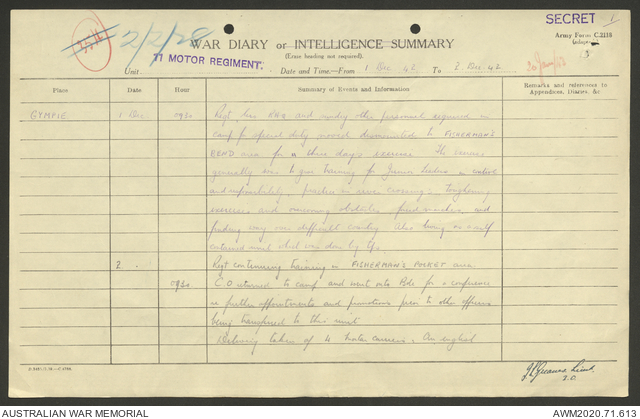 SECRET
Army Form C.2118
2/2/20
WAR DIARY or INTELLIGENCE SUMMARY
(Erase heading not required).
77 MOTOR REGIMENT.
Unit
Date and Time—From 1 Dec 42 To 2 Dec. 42
Place
Date
Hour
Summary of Events and Information
Remarks and references to
Appendices, Diaries, &c
GYMPIE
1 Dec
0930
Regt less RHQ and sundry other personnel required in
camp for special duty moved dismounted to FISHERMAN'S
BEND area for a three day's exercise. The exercise
generally was to give training for Junior Leaders in control
and responsibility, practice in river crossings, toughening
exercises and overcoming obstacles, speed marches, and
finding way over difficult country. Also living as a self
contained unit
2
Regt continuing training in FISHERMAN'S POCKET area
0930
C.O returned to camp and went into Bde for a conference
re further appointments and promotions prior to other officers
being transferred to this unit
Delivery taken of 4 carriers. On
Lieut.
I.O.
AUSTRALIAN WAR MEMORIAL
AWM2020.71.613